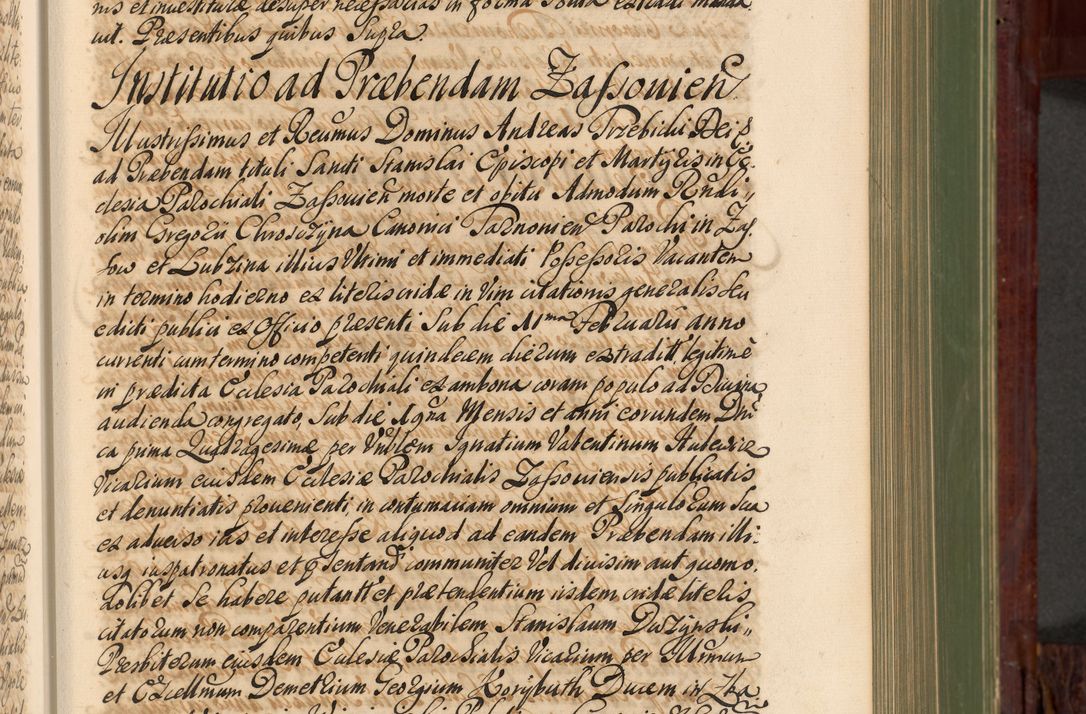 nis et investituræ desuper necessarias in forma solita extradi manda,
uit. Præsentibus quibus Supra.
Institutio ad Præbendam Zassouien.
Illustrissimus et Reumus Dominus Andreas Trzebicki Dei g̃
ad Præbendam tituli Sancti Stanislai Episcopi et Martyris in Ec,
clesia Parochiali Zassouien morte et obitu Admodum Rndi,,
olim Gregorii Chrosczyna Canonici Tarnonien Parochi in Zas,
sow et Lubzina illius Vltimi et immediati Possessoris Vacantem
in termino hodierno ex literis cridæ in Vim citationis generalis seu
edicti publici ex Officio præsenti Sub die 11ma Februarii anno
currenti cum termino competenti quindecem dierum extradit. legitimè
in prædicta Ecclesia Parochiali ex ambona coram populo ad Diuina
audienda congregato, Sub die 19na Mensis et anni eorundem Dni
ca prima Quadragesimæ per Vnblem Ignatium Valentinum
Vicarium eiusdem Ecclesiæ Parochialis Zassouiensis publicatis
et denuntiatis prouenienti, in contumaciam omnium et Singulorum Sua
ex aduerso ius et interesse aliquod ad eandem Præbendam illi:
usq iuspatronatus et p̃sentand communiter Vel diuisim aut quomo,
dolibet Se habere putant et prætendentium iisdem cridæ literis
citatorum non comparentium Venerabilem Stanislaum Duszynski,,
Presbiterum eiusdem Ecclesiæ Parochialis Vicarium per Illrmum
et Excellmum Demetrium Georgium Korybuth Ducem in Zba